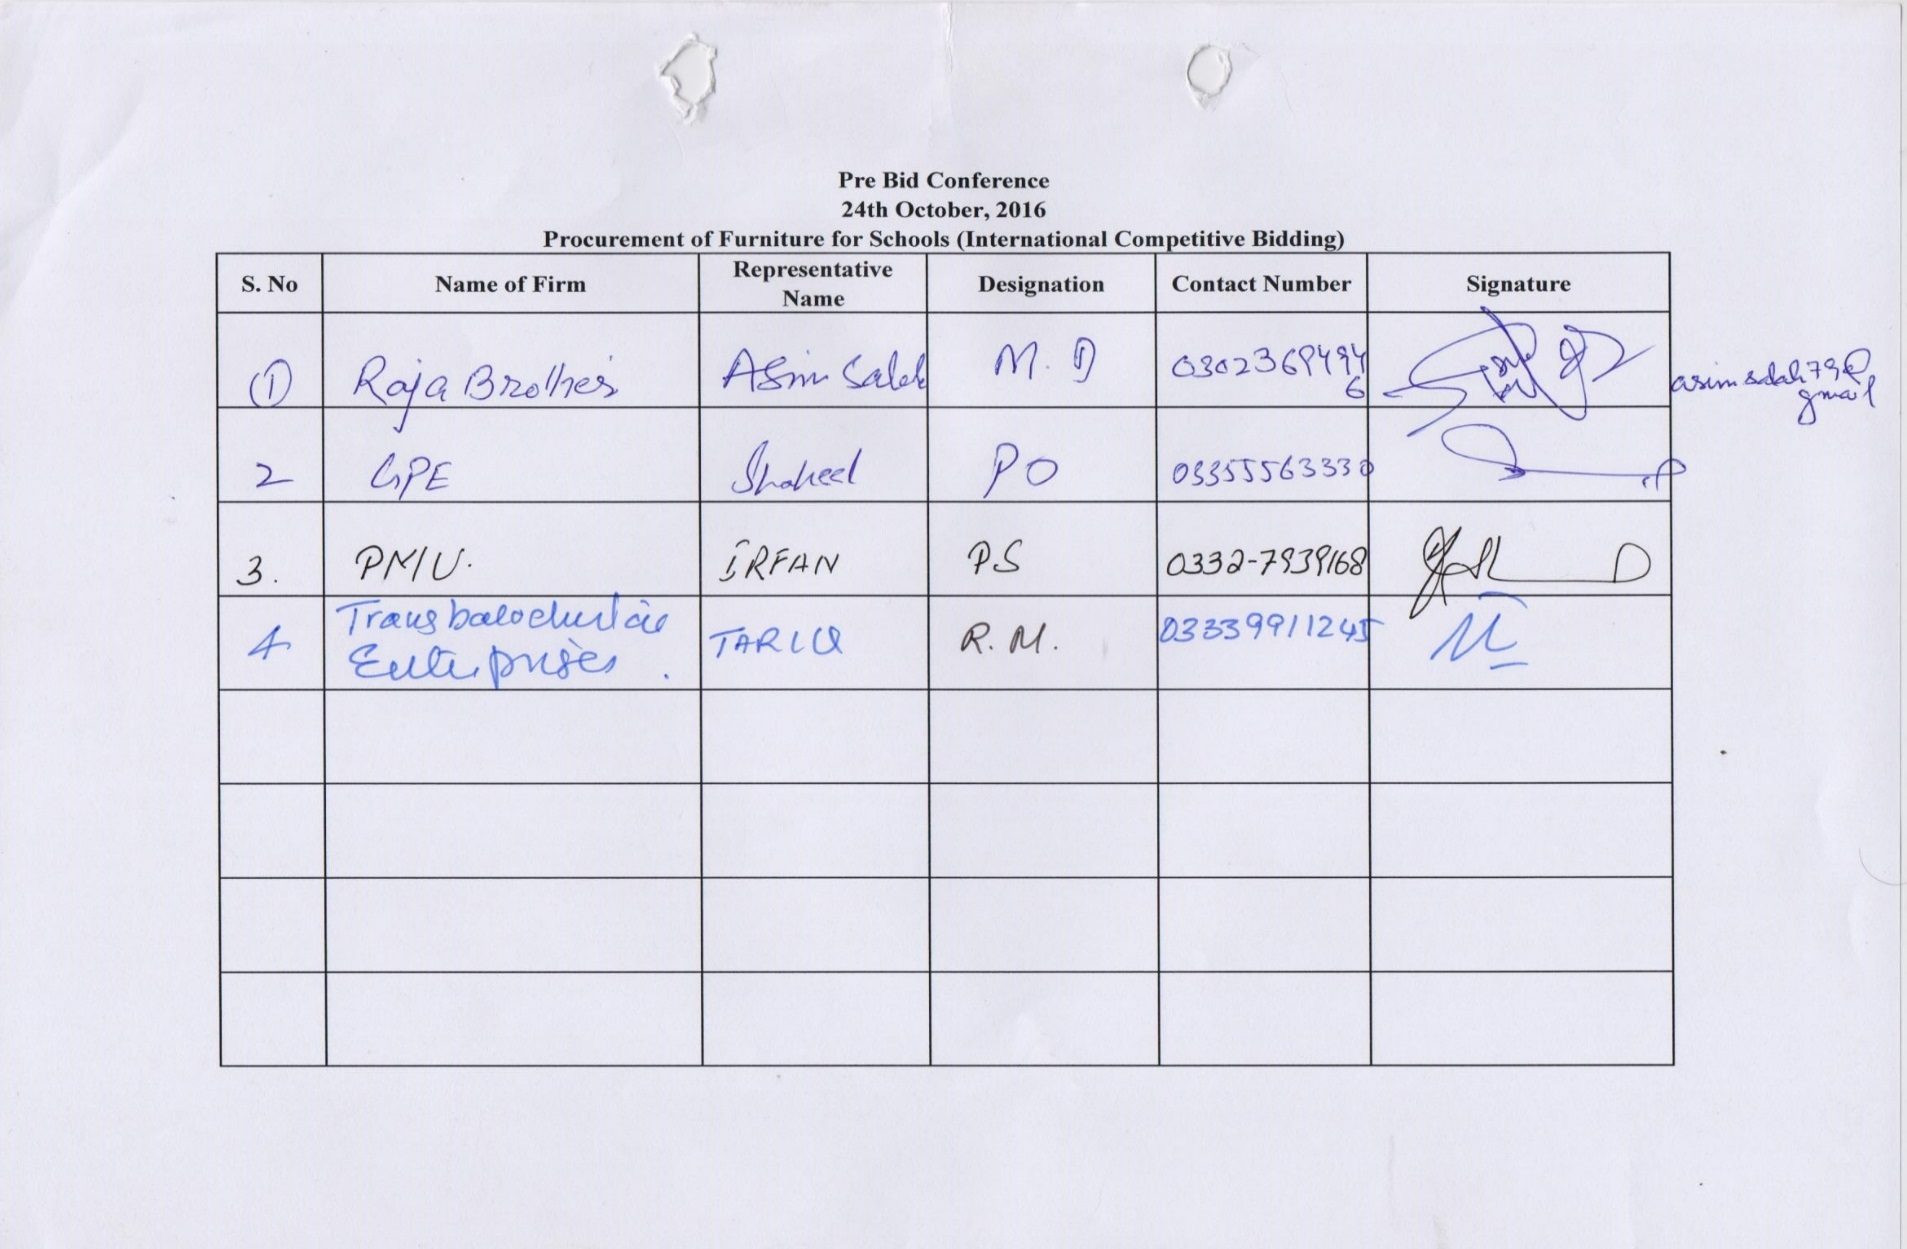 Pre Bid Conference
24th October, 2016
Procurement of Furniture for Schools (International Competitive Bidding)
S. No Name of Firm Representative Name Designation Contact Number Signature
① Raja Brothers Asim Salah M. D 0302369494 6
asimsalah79@
gmail
2 GPE Shaheed PO 03355563330
3. PMIU. IRFAN PS 0332-7939168
4 Transbalochistan
Enterprises. TARIQ R. M. 03339911245